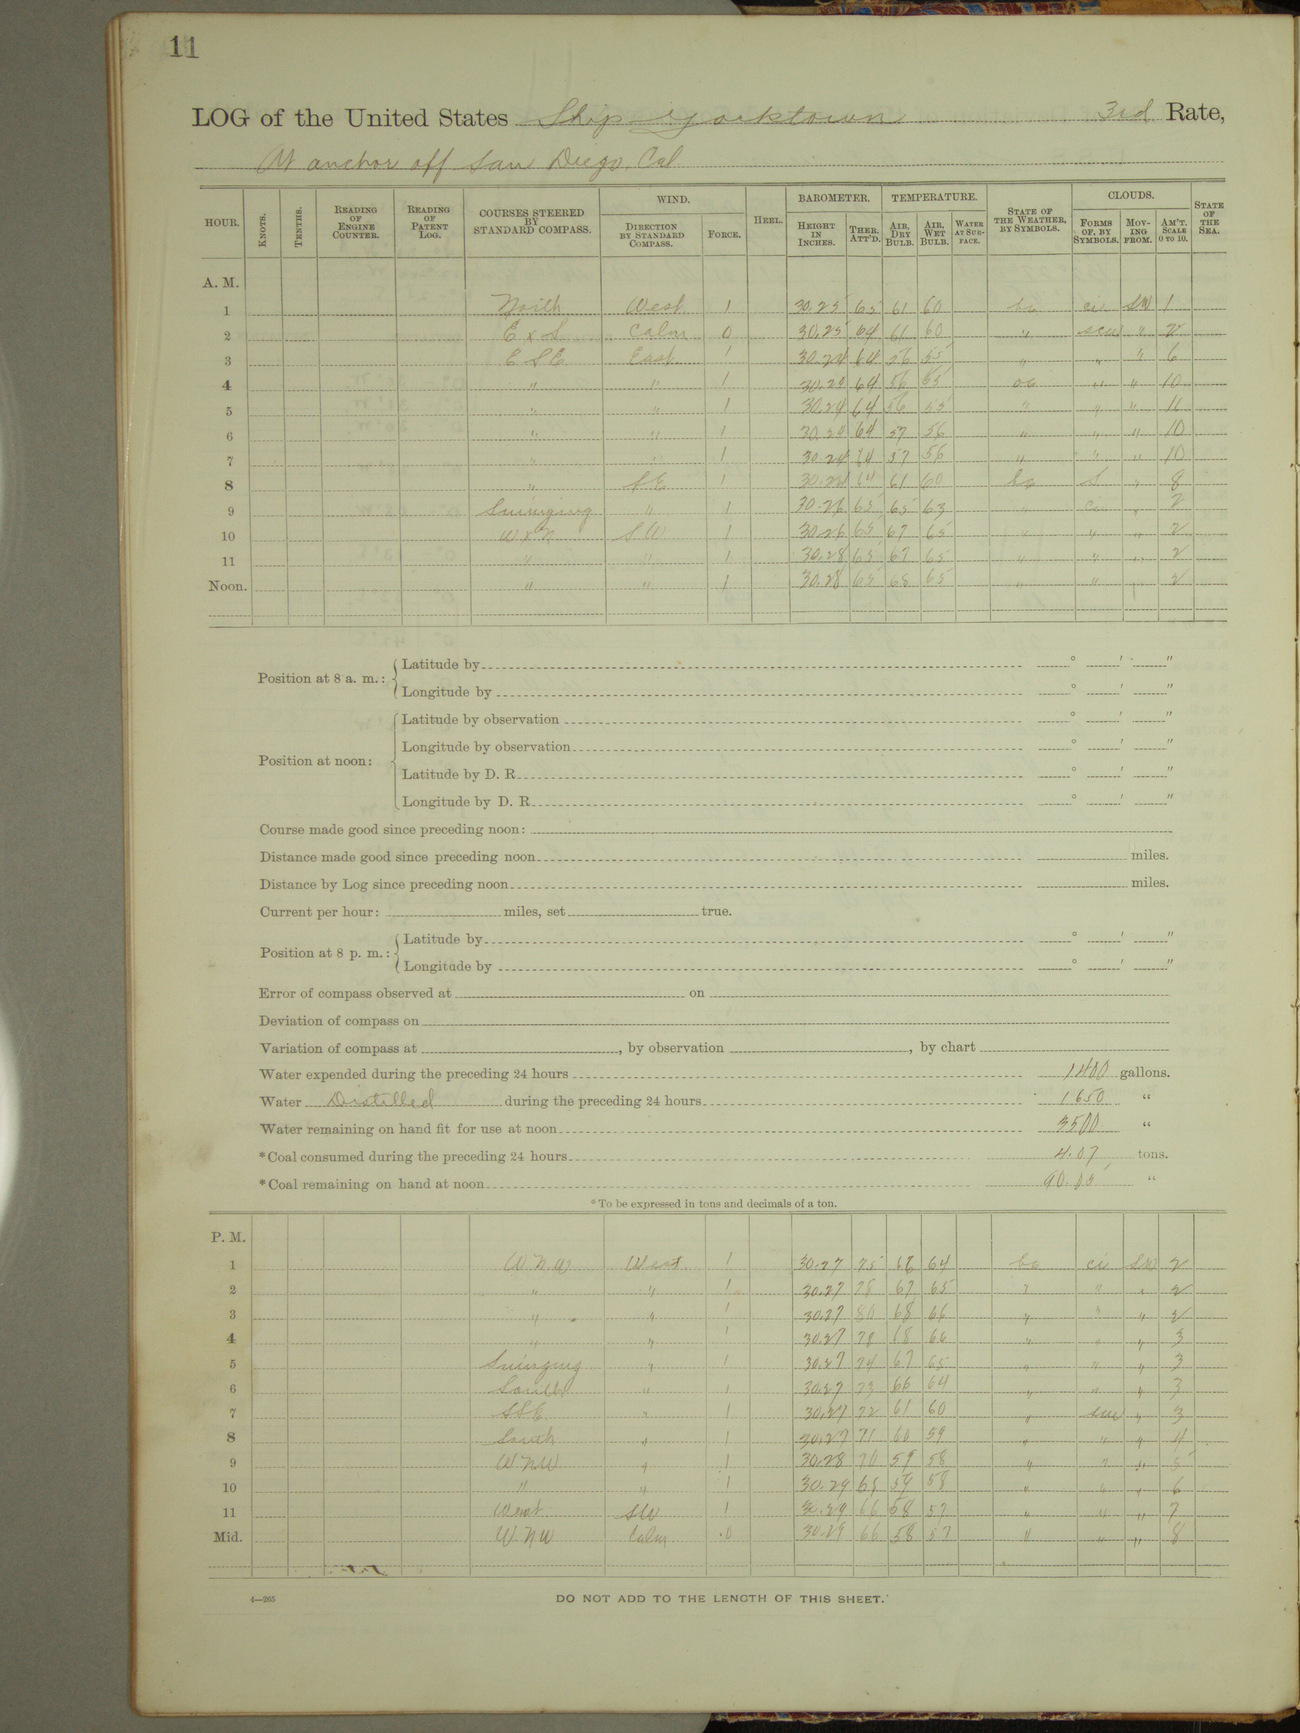 11
LOG of the United States Ship Yorktown 3rd Rate,
At anchor off San Diego, Cal
HOUR. KNOTS. TENTHS. READING OF ENGINE COUNTER. READING OF PATENT LOG. COURSES STEERED BY STANDARD COMPASS. WIND. DIRECTION BY STANDARD COMPASS. FORCE. HEEL. BAROMETER. HEIGHT IN INCHES. THER. ATT'D. TEMPERATURE. AIR, DRY BULB. AIR, WET BULB. WATER AT SURFACE. STATE OF THE WEATHER, BY SYMBOLS. CLOUDS. FORMS OF, BY SYMBOLS. MOVING FROM. AM'T. SCALE 0 TO 10. STATE OF THE SEA.
A. M.
1 North West 1 30.25 65 61 60 bc ci SW 1
2 E x S Calm 0 30.25 64 61 60 " scu " 2
3 ESE East 1 30.24 64 56 55 " " " 6
4 " " 1 64 56 55 oc " " 10
5 " " 1 30.24 64 56 55 " " "
6 " " 1 64 57 56 " " " 10
7 " " 1 30.24 64 57 56 " " " 10
8 " SE 1 61 60 bc S " 8
9 Swinging " 1 30.26 65 65 63 " ci " 2
10 W x N SW 1 30.26 65 67 65 " " " 2
11 " " 1 30.28 65 67 65 " " " 2
Noon. " " 1 30.28 65 68 65 " " " 2
Position at 8 a. m.: Latitude by ° ' "
Longitude by ° ' "
Position at noon: Latitude by observation ° ' "
Longitude by observation ° ' "
Latitude by D. R. ° ' "
Longitude by D. R. ° ' "
Course made good since preceding noon:
Distance made good since preceding noon miles.
Distance by Log since preceding noon miles.
Current per hour: miles, set true.
Position at 8 p. m.: Latitude by ° ' "
Longitude by ° ' "
Error of compass observed at on
Deviation of compass on
Variation of compass at , by observation , by chart
Water expended during the preceding 24 hours 1400 gallons.
Water Distilled during the preceding 24 hours 1650 "
Water remaining on hand fit for use at noon 3500 "
*Coal consumed during the preceding 24 hours 4.07 tons.
*Coal remaining on hand at noon "
*To be expressed in tons and decimals of a ton.
P. M.
1 W.N.W West 1 30.27 75 68 64 bc ci SW 2
2 " " 1 30.27 78 67 65 " " " 2
3 " " 1 30.27 80 68 66 " " " 2
4 " " 1 30.27 78 68 66 " " " 3
5 Swinging " 1 30.27 74 67 65 " " " 3
6 South " 1 30.27 73 66 64 " " " 3
7 SSE " 1 30.27 72 61 60 " scu " 3
8 South " 1 30.27 71 60 59 " " " 4
9 WNW " 1 30.28 70 59 58 " " " 5
10 " " 1 30.29 59 58 " " " 6
11 West SW 1 30.29 66 58 57 " " " 7
Mid. W.N.W Calm 0 30.29 66 58 57 " " " 8
4—265
DO NOT ADD TO THE LENGTH OF THIS SHEET.